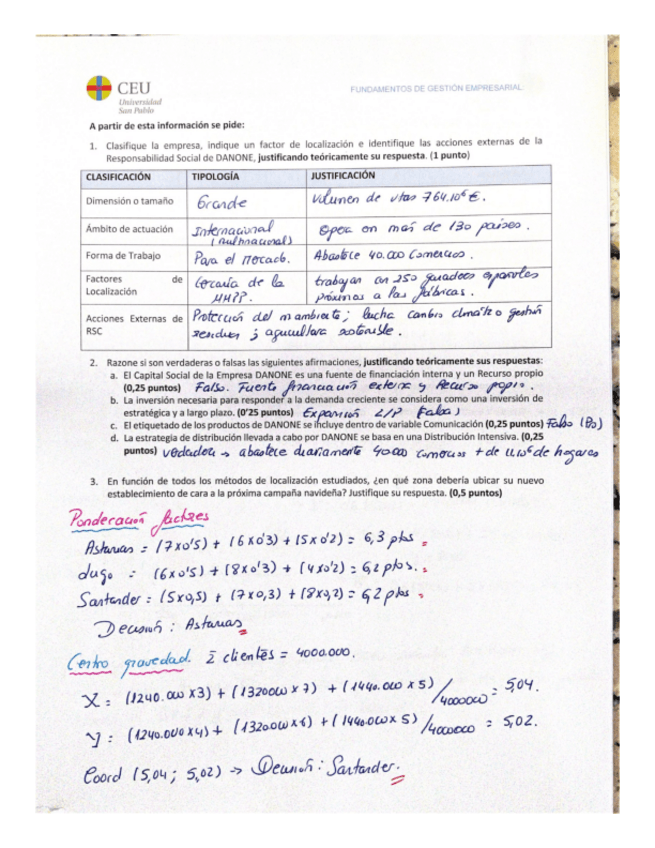 CEU
Universidad
San Pablo
FUNDAMENTOS DE GESTIÓN EMPRESARIAL
A partir de esta información se pide:
1. Clasifique la empresa, indique un factor de localización e identifique las acciones externas de la
Responsabilidad Social de DANONE, justificando teóricamente su respuesta. (1 punto)
CLASIFICACIÓN TIPOLOGÍA JUSTIFICACIÓN
Dimensión o tamaño Grande Volumen de vtas 764.10⁶ €.
Ámbito de actuación Internacional (multinacional) Opera en más de 130 países.
Forma de Trabajo Para el mercado. Abastece 40.000 Comercios.
Factores de Localización Cercanía de la MMPP. trabajan con 250 ganaderos españoles próximos a las fábricas.
Acciones Externas de RSC Protección del m ambiente; lucha cambio climático gestión residuos; agricultura sostenible.
2. Razone si son verdaderas o falsas las siguientes afirmaciones, justificando teóricamente sus respuestas:
a. El Capital Social de la Empresa DANONE es una fuente de financiación interna y un Recurso propio
(0,25 puntos) Falso. Fuente financiación externa y Recurso propio.
b. La inversión necesaria para responder a la demanda creciente se considera como una inversión de
estratégica y a largo plazo. (0'25 puntos) Expansión L/P (Falsa)
c. El etiquetado de los productos de DANONE se incluye dentro de variable Comunicación (0,25 puntos) Falso (Po)
d. La estrategia de distribución llevada a cabo por DANONE se basa en una Distribución Intensiva. (0,25
puntos) verdadera → abastece diariamente 40000 comercios + de de hogares
3. En función de todos los métodos de localización estudiados, ¿en qué zona debería ubicar su nuevo
establecimiento de cara a la próxima campaña navideña? Justifique su respuesta. (0,5 puntos)
Ponderación factores
Asturias = (7x0'5) + (6x0'3) + (5x0'2) = 6,3 ptos.
Lugo = (6x0'5) + (8x0'3) + (4x0'2) = 6,2 ptos.
Santander = (5x0,5) + (7x0,3) + (8x0,2) = 6,2 ptos
Decisión: Asturias
Centro gravedad. Σ clientes = 4000.000.
X = (1240.000 x3) + (1320000 x 7) + (1440.000 x 5) / 4000000 = 5,04.
Y = (1240.000 x4) + (1320000x6) + (1440.000x 5) / 4000000 = 5,02.
Coord (5,04; 5,02) → Decisión: Santander.